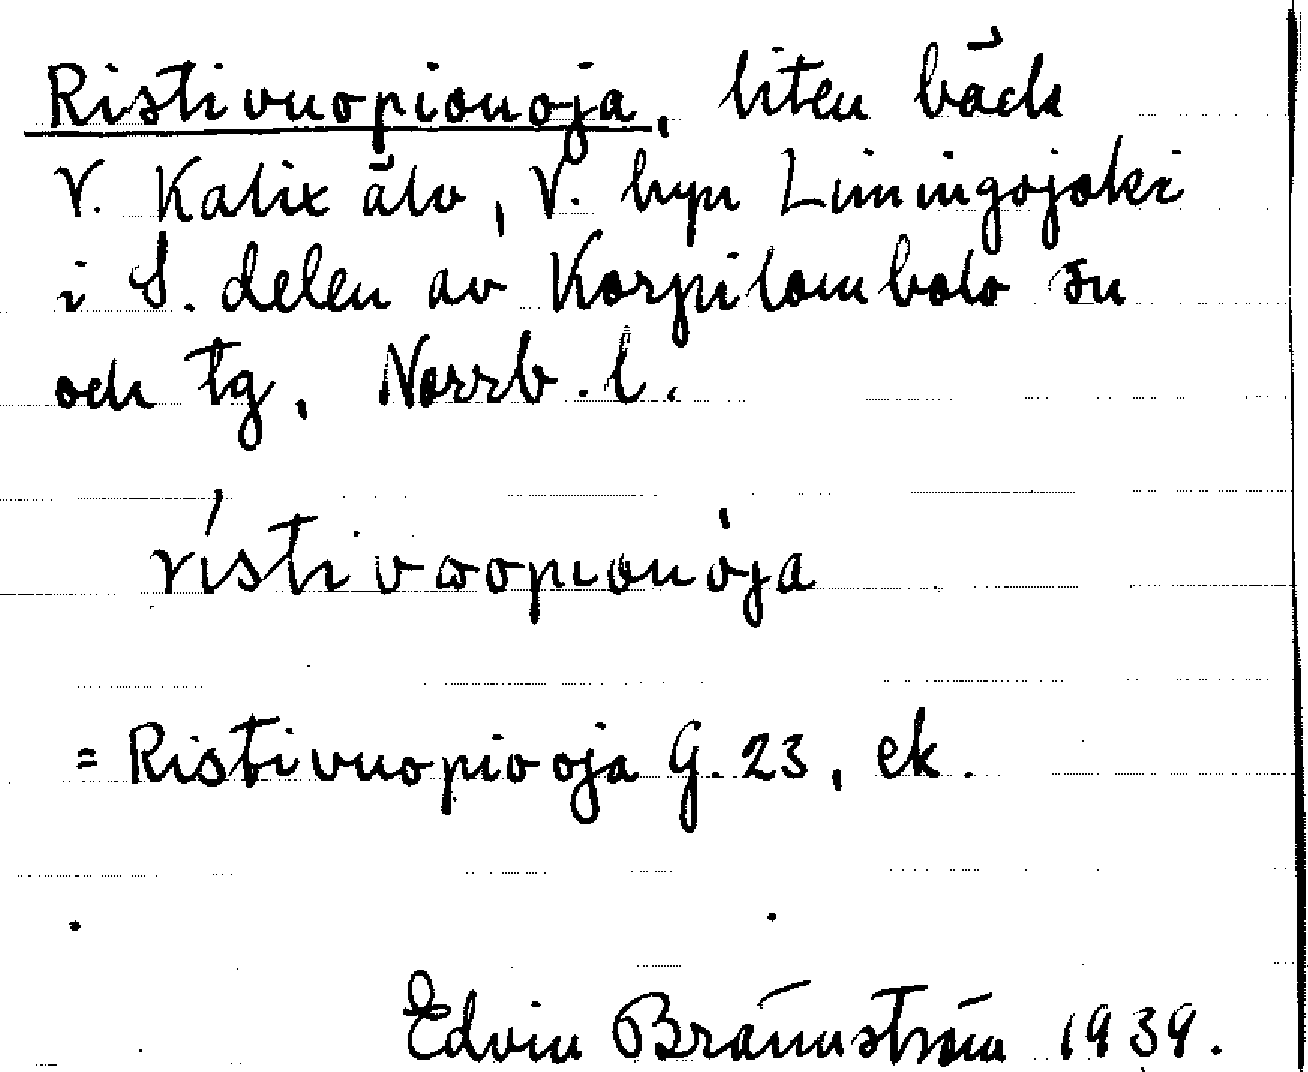 Ristivuopionoja, liten bäck
V. Kalix älv, V. byn Limingojoki
i S. delen av Korpilombolo sn
och tg, Norrb. l.
rísti vωopionòja
= Ristivuopio oja G. 23, ek.
Edvin Brännström 1939.